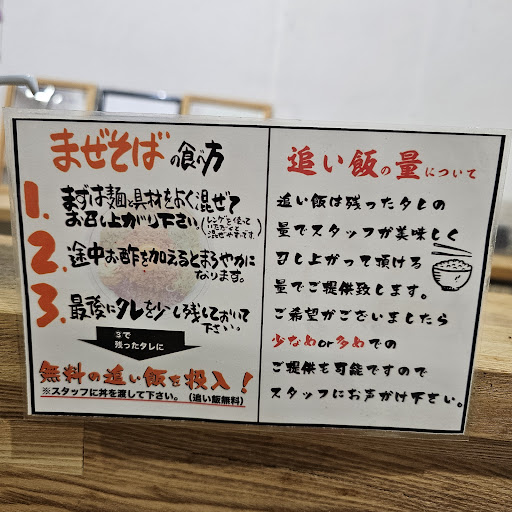 まぜそばの食べ方
1. まずは麺と具材をよく混ぜて
お召し上がり下さい。(レンゲを使って
いただくと
混ぜやすいです。)
2. 途中お酢を加えるとまろやかに
なります。
3. 最後にタレを少し残しておいて
下さい。
3で
残ったタレに
無料の追い飯を投入!
※スタッフに丼を渡して下さい。(追い飯無料)
追い飯の量について
追い飯は残ったタレの
量でスタッフが美味しく
召し上がって頂ける
量でご提供致します。
ご希望がございましたら
少なめor多めでの
ご提供も可能ですので
スタッフにお声がけ下さい。